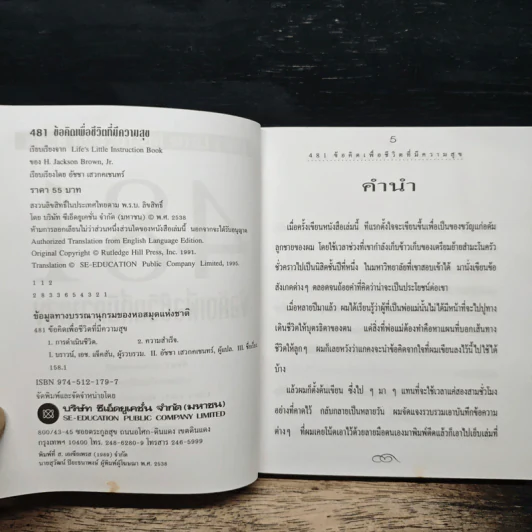 481 ข้อคิดเพื่อชีวิตที่มีความสุข
เรียบเรียงจาก Life's Little Instruction Book
ของ H. Jackson Brown, Jr.
เรียบเรียงโดย อัชชา เสวกคเชนทร์
ราคา 55 บาท
สงวนลิขสิทธิ์ในประเทศไทยตาม พ.ร.บ. ลิขสิทธิ์
โดย บริษัท ซีเอ็ดยูเคชั่น จำกัด (มหาชน) © พ.ศ. 2538
ห้ามการลอกเลียนไม่ว่าส่วนหนึ่งส่วนใดของหนังสือเล่มนี้ นอกจากจะได้รับอนุญาต
Authorized Translation from English Language Edition.
Original Copyright © Rutledge Hill Press, Inc. 1991.
Translation © SE-EDUCATION Public Company Limited, 1995.
1 1 2
2 8 3 8 5 4 3 2 1
ข้อมูลทางบรรณานุกรมของหอสมุดแห่งชาติ
481 ข้อคิดเพื่อชีวิตที่มีความสุข
1. การดำเนินชีวิต. 2. ความสำเร็จ.
I. บราวน์, เอช. แจ็คสัน, ผู้รวบรวม. II. อัชชา เสวกคเชนทร์, ผู้แปล. III. ชื่อเรื่อง
158.1
ISBN 974-512-179-7
จัดพิมพ์และจัดจำหน่ายโดย
บริษัท ซีเอ็ดยูเคชั่น จำกัด (มหาชน)
SE-EDUCATION PUBLIC COMPANY LIMITED
800/43-45 ซอยตระกูลสุข ถนนอโศก-ดินแดง เขตดินแดง
กรุงเทพฯ 10400 โทร. 248-6260-9 โทรสาร 246-5999
พิมพ์ที่ ส. เอเซียเพรส (1989) จำกัด
นายสุวัฒน์ ปิยะธนาพงษ์ ผู้พิมพ์ผู้โฆษณา พ.ศ. 2538
5
481 ข้อคิดเพื่อชีวิตที่มีความสุข
คำนำ
เมื่อครั้งเขียนหนังสือเล่มนี้ ทีแรกตั้งใจจะเขียนขึ้นเพื่อเป็นของขวัญแก่อดัม
ลูกชายของผม โดยใช้เวลาช่วงที่เขากำลังเก็บข้าวเก็บของเตรียมย้ายสำมะโนครัว
ชั่วคราวไปเป็นนิสิตชั้นปีที่หนึ่ง ในมหาวิทยาลัยที่เขาสอบเข้าได้ มานั่งเขียนข้อ
สังเกตต่างๆ ตลอดจนถ้อยคำที่คิดว่าน่าจะเป็นประโยชน์ต่อเขา
เมื่อหลายปีมาแล้ว ผมได้เรียนรู้ว่าผู้ที่เป็นพ่อแม่นั้นไม่ได้มีหน้าที่จะไปปูทาง
เดินชีวิตให้บุตรธิดาของตน แต่สิ่งที่พ่อแม่ต้องทำคือหาแผนที่บอกเส้นทาง
ชีวิตให้ลูกๆ ผมก็เลยหวังว่าแกคงจะนำข้อคิดจากใจที่ผมเขียนลงไว้นี้ไปใช้ได้
บ้าง
แล้วผมก็ตั้งต้นเขียน ซึ่งไป ๆ มา ๆ แทนที่จะใช้เวลาแค่สองสามชั่วโมง
อย่างที่คาดไว้ กลับกลายเป็นหลายวัน ผมจัดแจงรวบรวมเอาบันทึกข้อความ
ต่างๆ ที่ผมเคยโน้ตเอาไว้ด้วยลายมือตนเองมาพิมพ์ดีดแล้วก็เอาไปเย็บเล่มที่